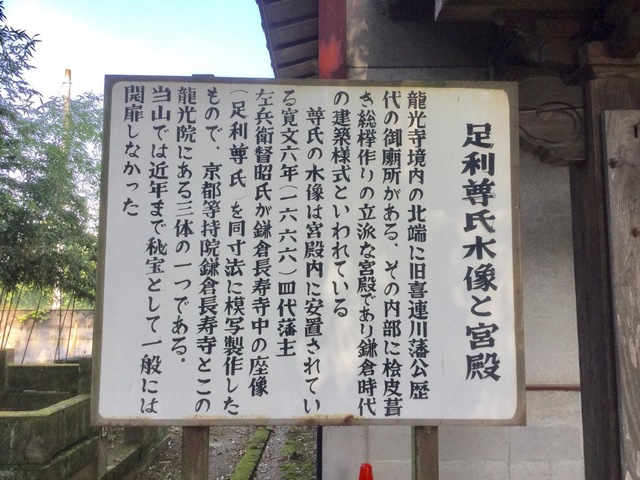 足利尊氏木像と宮殿
龍光寺境内の北端に旧喜連川藩公歴
代の御廟所がある、その内部に桧皮葺
き総欅作りの立派な宮殿であり鎌倉時代
の建築様式といわれている
尊氏の木像は宮殿内に安置されてい
る寛文六年(一六六六)四代藩主
左兵衛督昭氏が鎌倉長寿寺中の座像
(足利尊氏)を同寸法に模写製作した
もので、京都等持院鎌倉長寿寺とこの
龍光院にある三体の一つである.
当山では近年まで秘宝として一般には
開扉しなかった